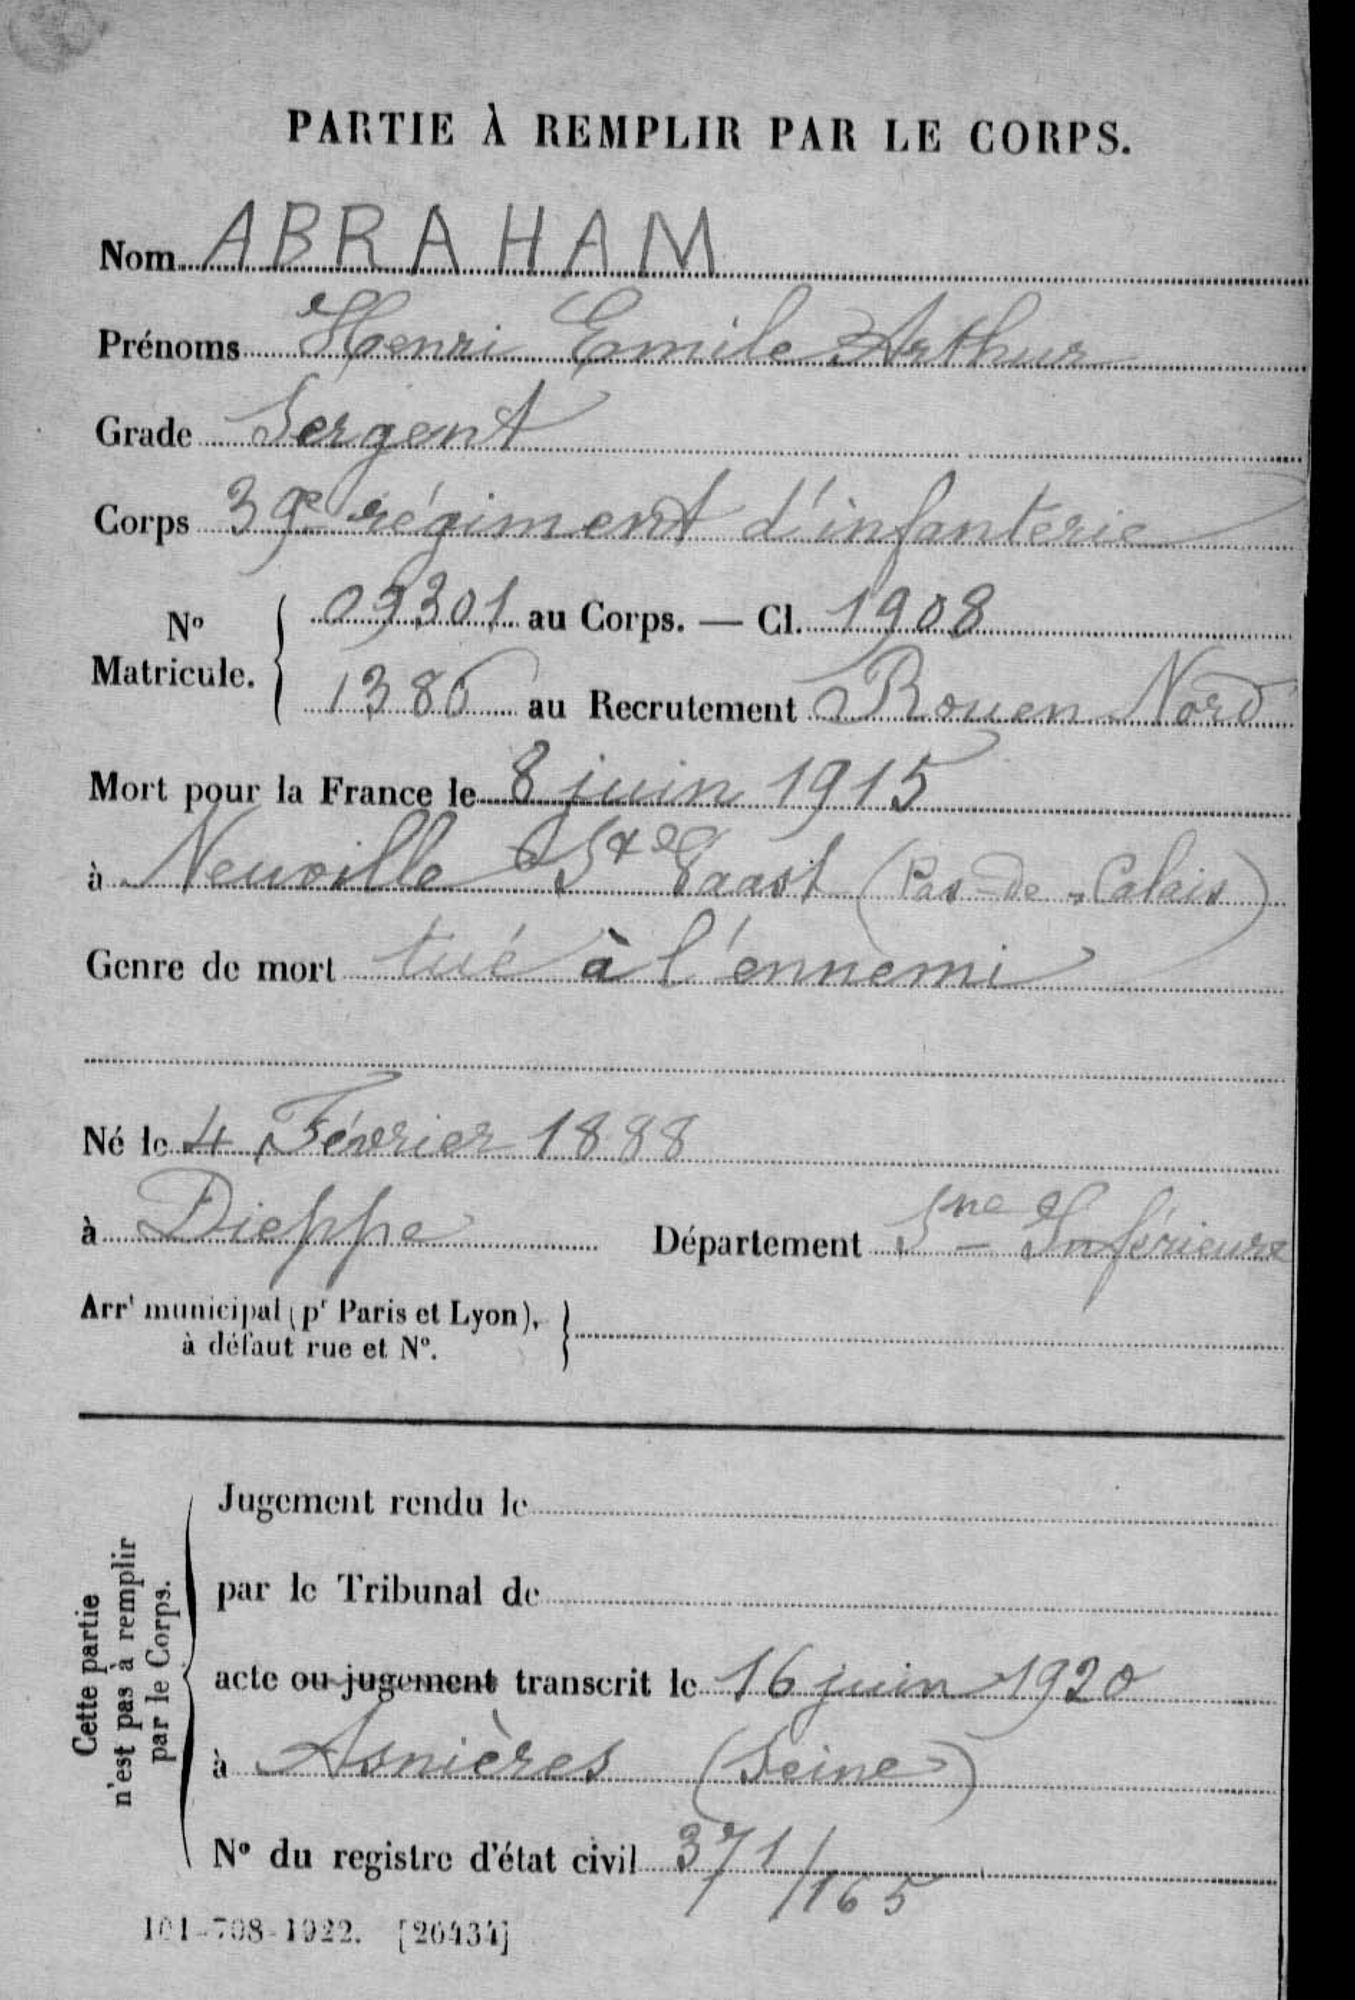 PARTIE À REMPLIR PAR LE CORPS.
Nom ABRAHAM
Prénoms Henri Emile Arthur
Grade Sergent
Corps 39e régiment d'infanterie
No Matricule. { 09301 au Corps. — Cl. 1908
1386 au Recrutement Rouen Nord
Mort pour la France le 8 juin 1915
à Neuville Ste Vaast (Pas-de-Calais)
Genre de mort tué à l'ennemi
Né le 4 Février 1888
à Dieppe Département Sne Inférieure
Arrt municipal (pr Paris et Lyon),
à défaut rue et No.
Cette partie
n'est pas à remplir
par le Corps.
Jugement rendu le
par le Tribunal de
acte ou jugement transcrit le 16 juin 1920
à Asnières (Seine)
No du registre d'état civil 371/165
101-708-1922. [26434]